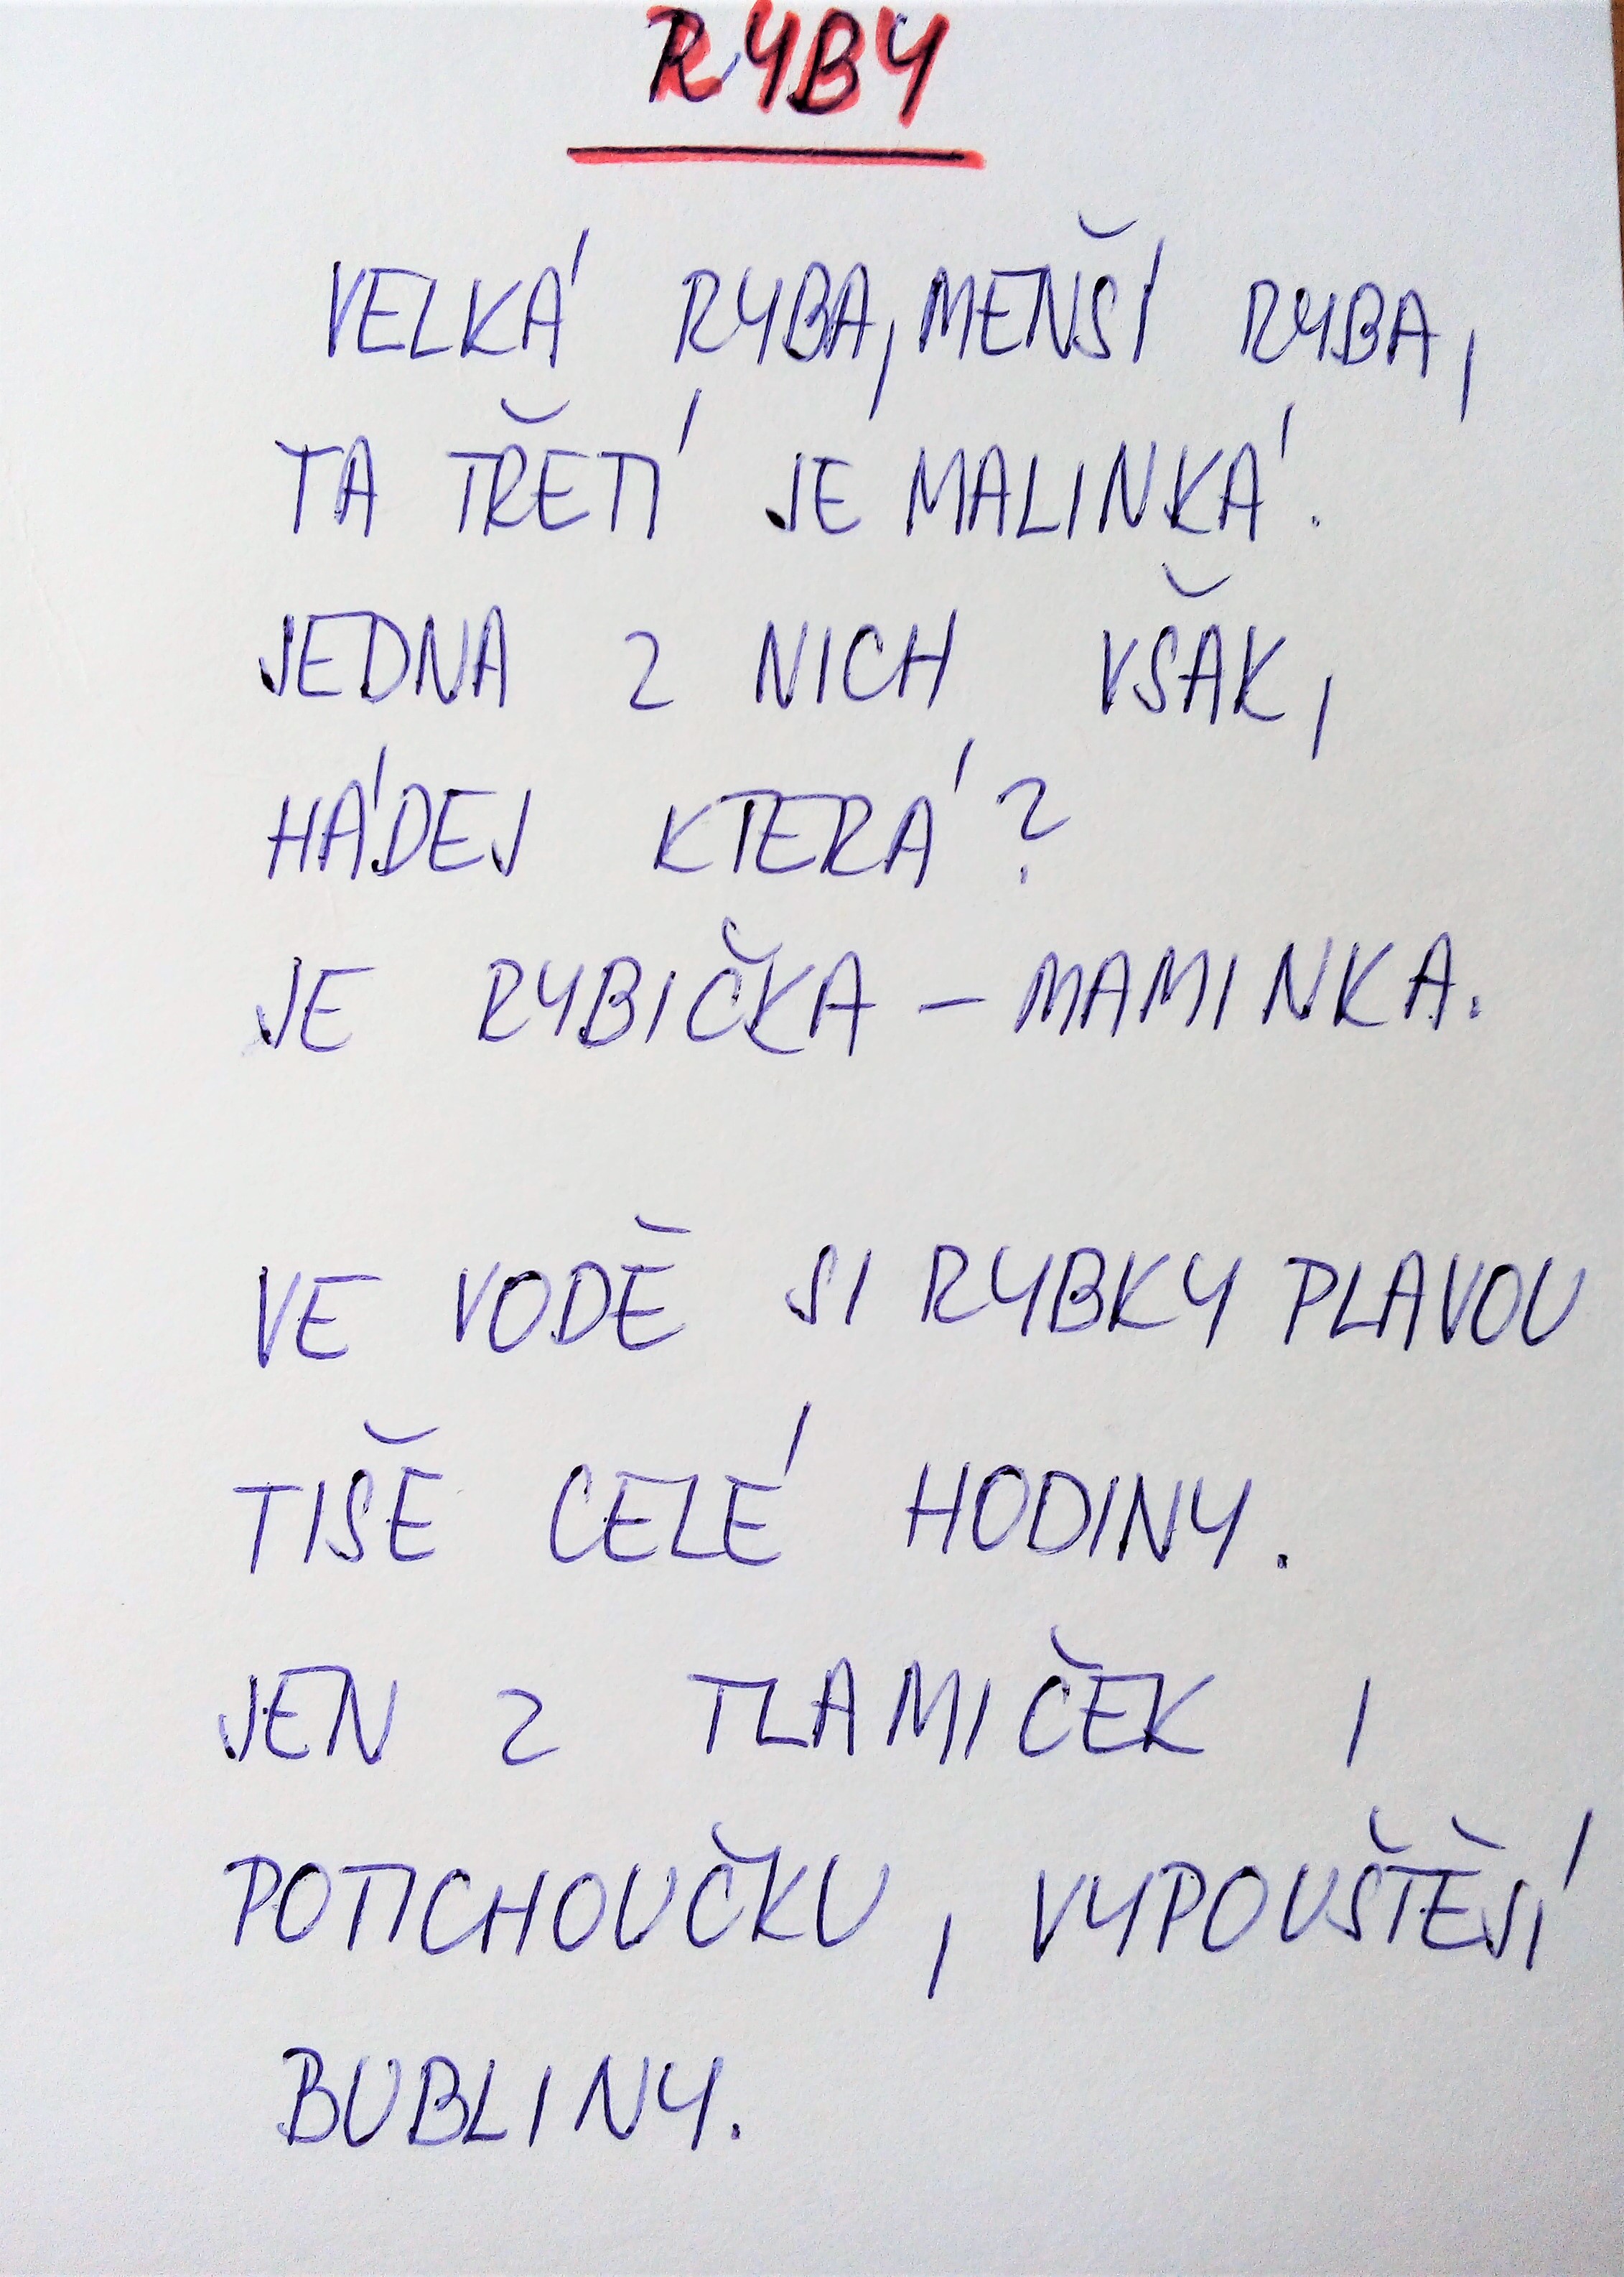 RYBY
VELKÁ RYBA, MENŠÍ RYBA,
TA TŘETÍ JE MALINKÁ.
JEDNA Z NICH VŠAK,
HÁDEJ KTERÁ?
JE RYBIČKA - MAMINKA.
VE VODĚ SI RYBKY PLAVOU
TIŠE CELÉ HODINY.
JEN Z TLAMIČEK ,
POTICHOUČKU, VYPOUŠTĚJÍ
BUBLINY.